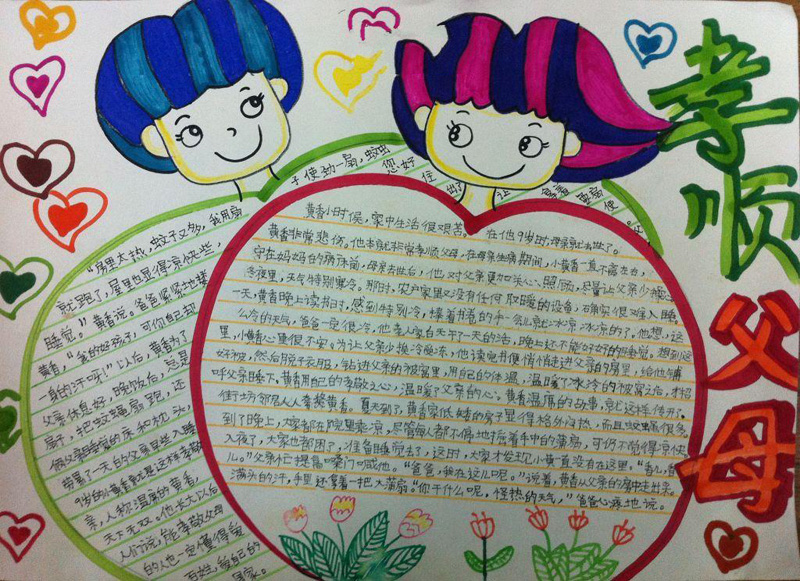 孝顺
父母
黄香小时候,家中生活很艰苦。在他9岁时,母亲就去世了。
黄香非常悲伤。他本就非常孝顺父母,在母亲生病期间,小黄香一直不离左右,
守在妈妈的病床前,母亲去世后,他对父亲更加关心、照顾,尽量让父亲少操心
冬夜里,天气特别寒冷。那时,农户家里又没有任何取暖的设备,确实很难入睡。
一天,黄香晚上读书时,感到特别冷,捧着书卷的手一会儿就冰凉冰凉的了。他想,这
么冷的天气,爸爸一定很冷,他老人家白天干了一天的活,晚上还不能好好的睡觉。想到这
里,小黄香心里很不安。为让父亲少挨冷受冻,他读完书便悄悄走进父亲的房里,给他铺
好被,然后脱了衣服,钻进父亲的被窝里,用自己的体温,温暖了冰冷的被窝之后,才招
呼父亲睡下。黄香用自己的孝敬之心,温暖了父亲的心。黄香温席的故事,就这样传开了
街坊邻居人人夸奖黄香。夏天到了,黄香家低矮的房子显得格外闷热,而且蚊虫很多。
到了晚上,大家都在院里乘凉,尽管每人都不停地摇着手中的蒲扇,可仍不觉得凉快
入夜了,大家也都困了,准备睡觉去了,这时,大家才发现小黄香一直没有在这里。"香儿,香
儿。"父亲忙提高嗓门喊他。"爸爸,我在这儿呢。"说着,黄香从父亲的房中走出来。
满头的汗,手里还拿着一把大蒲扇。"你干什么呢,怪热的天气,"爸爸心疼地说。
"房里太热,蚊子又多,我用扇
子使劲一扇,蚊虫
就跑了,屋里也显得凉快些,
您好
睡觉。"黄香说。爸爸紧紧地搂
住
黄香,"我的好孩子,可你自己却
出了
一身的汗呀!"以后,黄香为了
让
父亲休息好,晚饭后,总是
拿着
扇子,把蚊蝇扇跑,还
要扇
俩父亲睡觉的床和枕头,
使
劳累了一天的父亲早些入睡
9岁的小黄香就是这样孝敬
父
亲,人称温席的黄香,
天下无双。他长大以后
人们说,能孝敬父母
的人也一定懂得爱
百姓,爱自己的
国家。